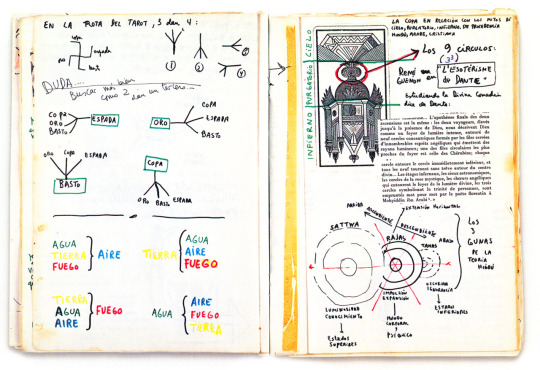 EN LA RUTA DEL TAROT, 3 dan 4:
copa
espada
oro
basto
1
2
3
4
DUDA...
Buscar más bien
como 2 dan un tercero...
COPA
ORO
BASTO
ESPADA
ORO
COPA
ESPADA
BASTO
ORO
COPA
ESPADA
BASTO
COPA
ORO
BASTO
ESPADA
AGUA
TIERRA
FUEGO
AIRE
TIERRA
AGUA
AIRE
FUEGO
TIERRA
AGUA
AIRE
FUEGO
AGUA
AIRE
FUEGO
TIERRA
LA COPA EN RELACIÓN CON LOS MITOS DE
CIELO, PURGATORIO, INFIERNO, DE PROCEDENCIA
HINDÚ, ARABE, CRISTIANA
INFIERNO PURGATORIO CIELO
LOS 9 CIRCULOS:
(33)
RENÉ GUENON en
"L'ESOTÉRISME
DU DANTE"
Estudiando la Divina Comedia
de Dante:
L'apothéose finale des deux
ascensions est la même: les deux voyageurs, élevés
jusqu'à la présence de Dieu, nous décrivent Dieu
comme un foyer de lumière intense, entouré de
neuf cercles concentriques formés par les files serrées
d'innombrables esprits angéliques qui émettent des
rayons lumineux; une des files circulaires les plus
proches du foyer est celle des Chérubins; chaque
cercle entoure le cercle immédiatement inférieur, et
tous les neuf tournent sans trêve autour du centre
divin... Les étages infernaux, les cieux astronomiques,
les cercles de la rose mystique, les chœurs angéliques
qui entourent le foyer de la lumière divine, les trois
cercles symbolisant la trinité de personnes, sont
empruntés mot pour mot par le poète florentin à
Mohyiddin Ibn Arabi".
EXTENSIÓN HORIZONTAL
ARRIBA
ASCENDENTE
DESCENDENTE
ABAJO
SATTWA
RAJAS
TAMAS
LOS
3
GUNAS
DE LA
TEORIA
HINDÚ
LUMINOSIDAD
CONOCIMIENTO
IMPULSIÓN
EXPANSIÓN
OSCURIDAD
IGNORANCIA
ESTADOS
SUPERIORES
MUNDO
CORPORAL
Y
PSÍQUICO
ESTADOS
INFERIORES